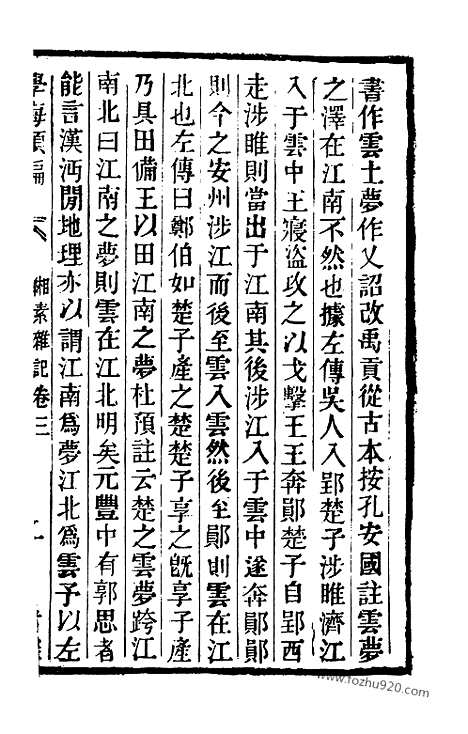 書作雲土夢作乂詔改禹貢從古本按孔安國註雲夢
之澤在江南不然也據左傳吳人入郢楚子涉睢濟江
入于雲中王寢盜攻之以戈擊王王奔鄖楚子自郢西
走涉睢則當出于江南其後涉江入于雲中遂奔鄖鄖
則今之安州涉江而後至雲入雲然後至鄖則雲在江
北也左傳曰鄭伯如楚子產之楚楚子享之既享子產
乃具田備王以田江南之夢杜預註云楚之雲夢跨江
南北曰江南之夢則雲在江北明矣元豐中有郭思者
能言漢沔閒地理亦以謂江南爲夢江北爲雲予以左
學海類編
緗素雜記卷三
www.fozhu920.com